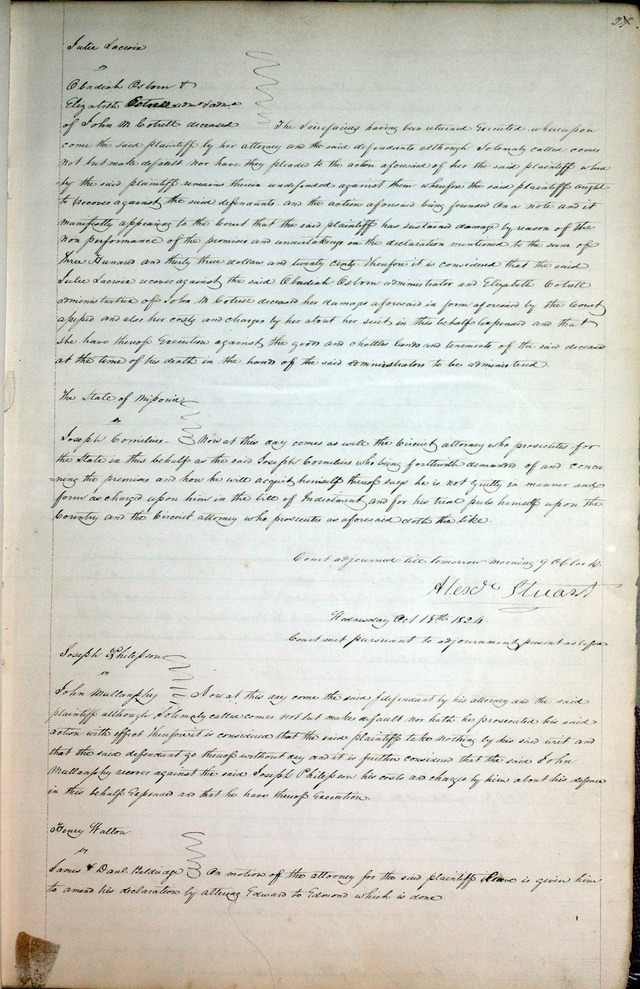 Julie Lacroix
vs
Obadiah Osborn &
Elizabeth Cotrell adm & admx
of John M Cotrell deceased The Scirefacias having been returned Executed whereupon
come the said plaintiff by her attorney and the said defendants although Solemnly called comes
not but make default nor have they pleaded to the action aforesaid of her the said plaintiff where
by the said plaintiff remains therein undefended against them wherefore the said plaintiff ought
to recover against the said defendants and the action aforesaid being founded On a note and it
manifestly appearing to the Court that the said plaintiff has sustained damage by reason of the
non performance of the promises and undertakings in the declaration mentioned to the sum of
three Hundred and thirty three dollars and twenty cents, therefore it is considered that the said
Julie Lacroix recover against the said Obadiah Osborn administrator and Elizabeth Cotrell
administratrix of John M Cotrell deceased her damage aforesaid in form aforesaid by the Court
assessed and also her costs and charges by her about her suit in this behalf Expended and that
She have thereof Execution against the goods and chattles lands and tenements of the said deceased
at the time of his death in the hands of the said administrators to be administered.
The State of Missouri
vs
Joseph Cornelius Now at this day comes as well the Circuit attorney who prosecutes for
the State in this behalf as the said Joseph Cornelius who being forthwith demanded of and concer
ning the premises and how he will acquit himself thereof says he is not guilty in manner and
form as charged upon him in the bill of Indictment and for his trial puts himself upon the
Country and the Circuit attorney who prosecutes as aforesaid doth the like.
Court adjourned till tomorrow morning 9 O Clock
Alexr Stuart
Wednesday Oct 13th 1824
Court met pursuant to adjournment, present as before
Joseph Philipson
vs
John Mullanphy Now at this day come the said defendant by his attorney and the said
plaintiff although Solemnly called comes not but makes default nor hath he prosecuted his said
action with effect therefore it is considered that the said plaintiff take nothing by his said writ and
that the said defendant go thereof without day and it is further considered that the said John
Mullanphy recover against the said Joseph Philipson his costs and charges by him about his defence
in this behalf Expended and that he have thereof Execution.
Henry Walton
vs
James & Danl. Baldridge On motion of the attorney for the said plaintiff Leave is given him
to amend his declaration by altering Edward to Edmond which is done